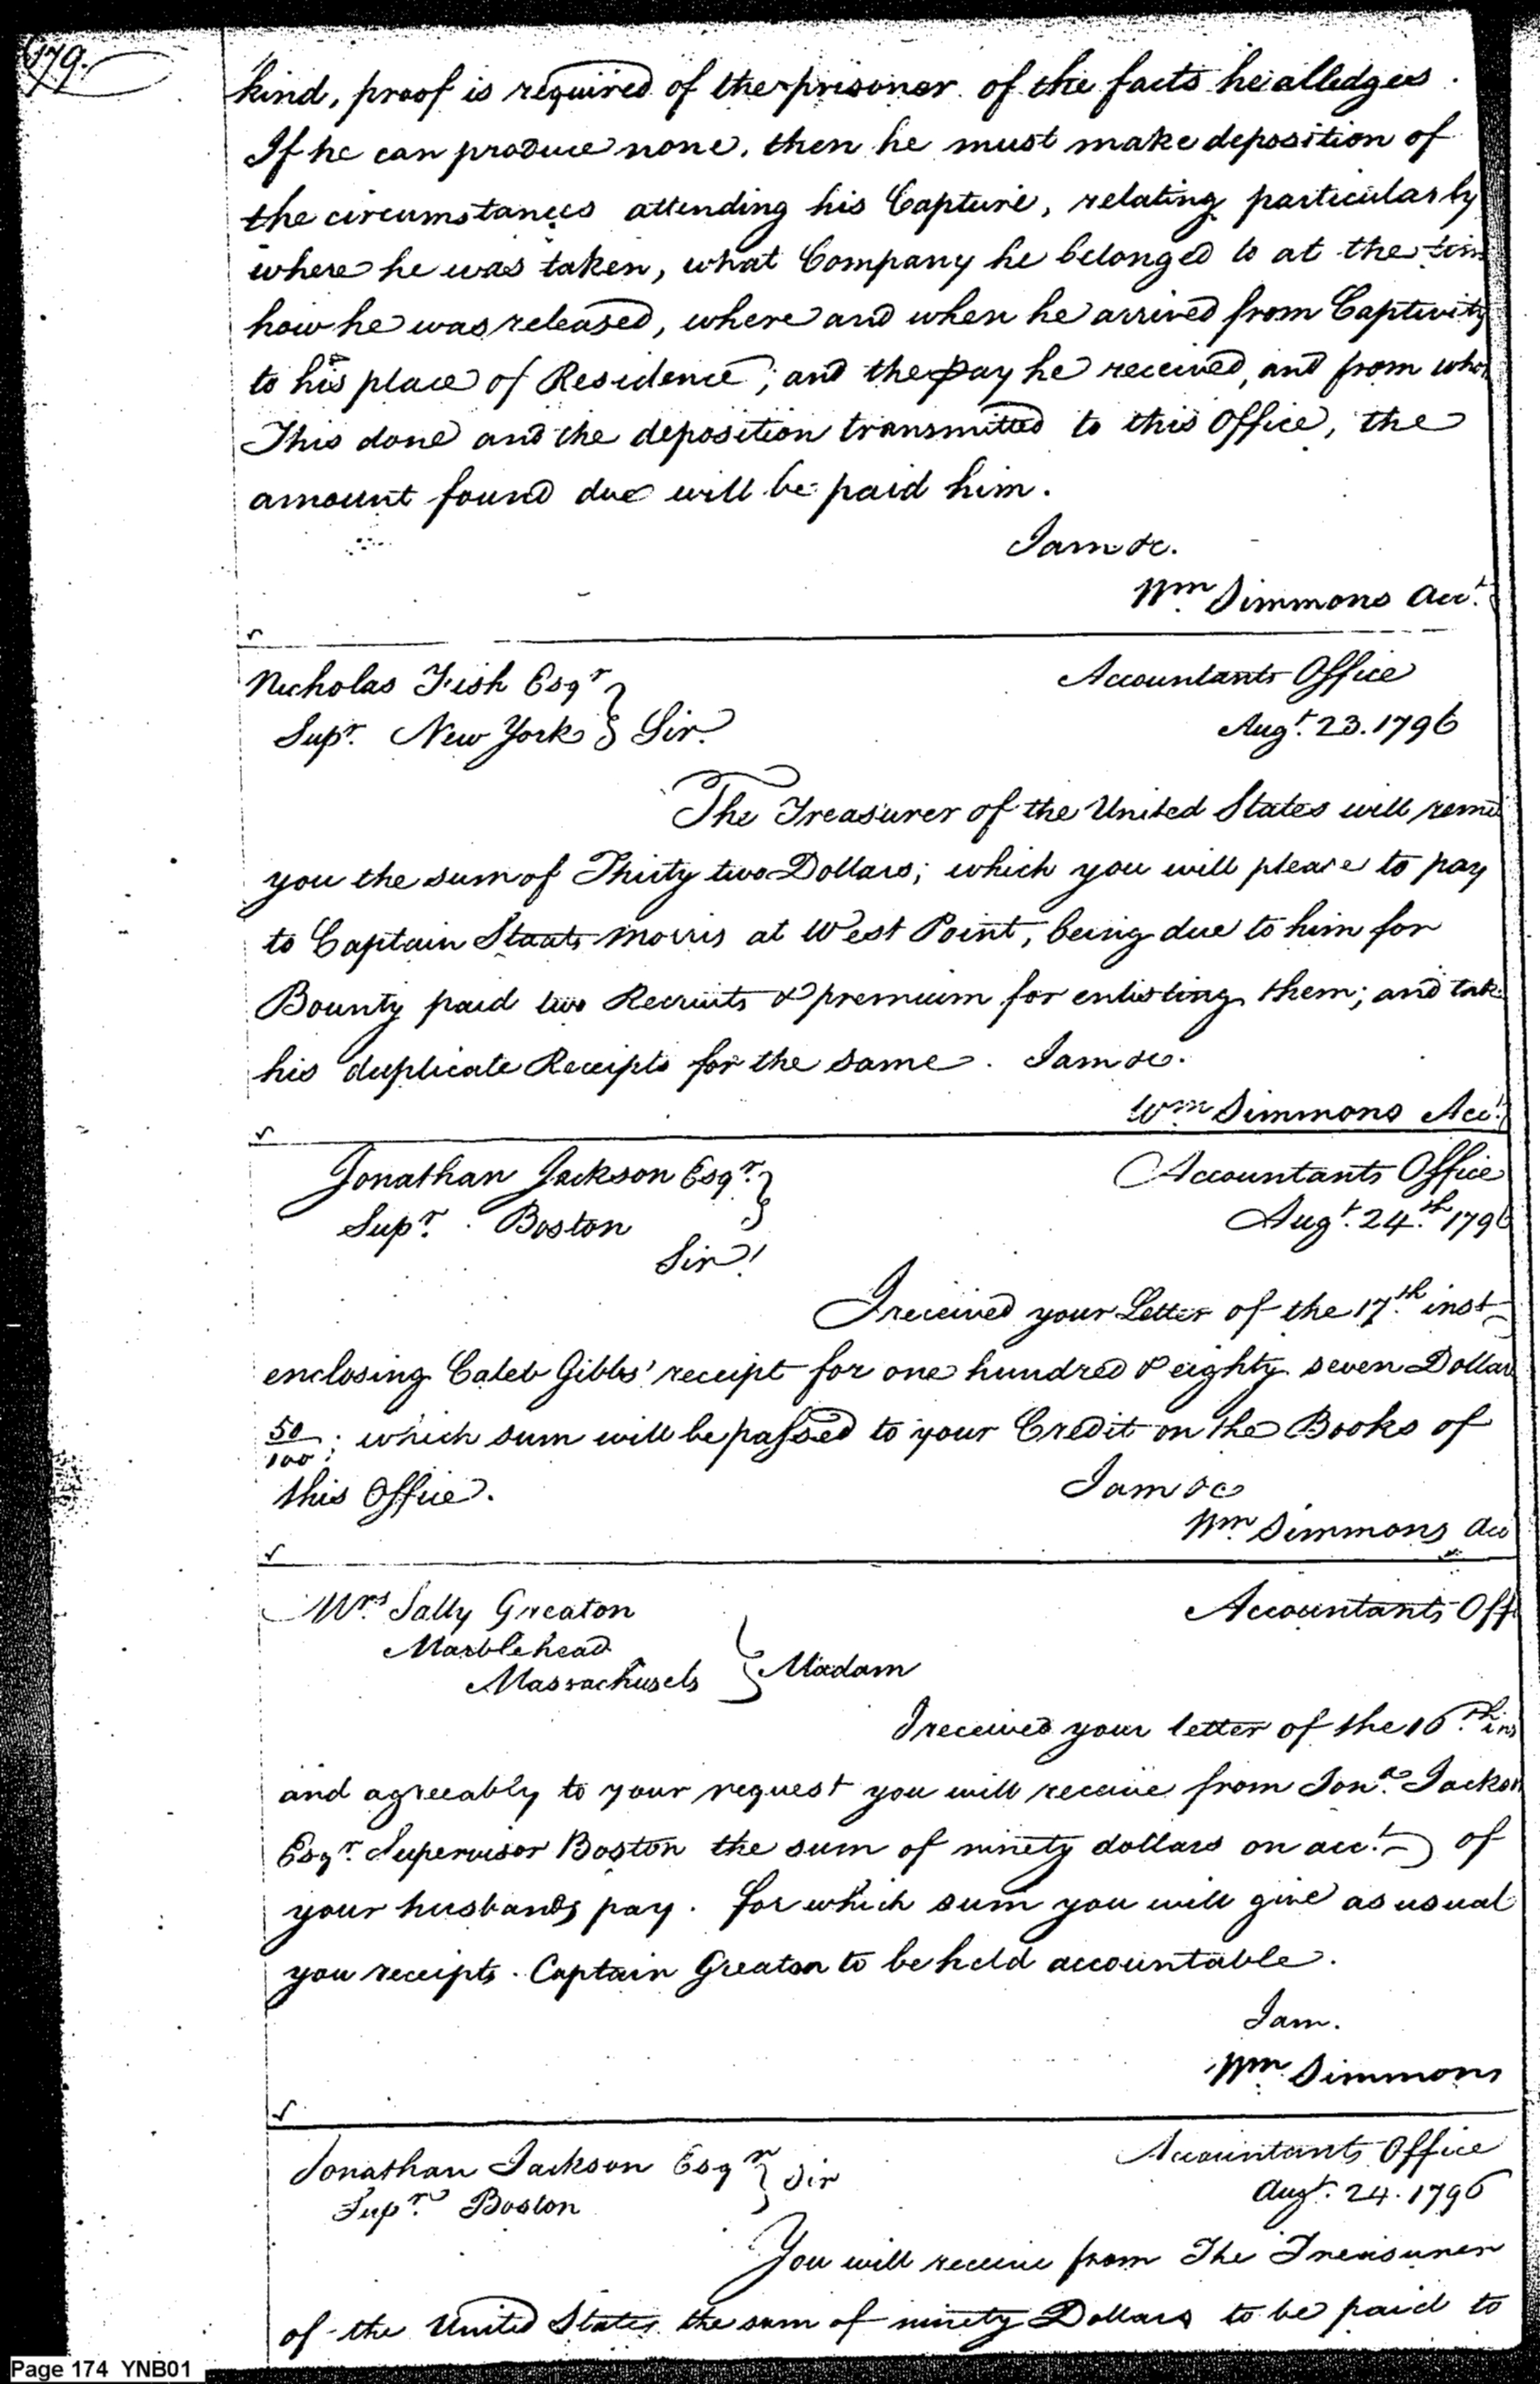 179.
kind, proof is required of the prisoner of the facts he alledges.
If he can produce none, then he must make deposition of
the circumstances attending his Capture, relating particularly
where he was taken, what Company he belonged to at the
how he was released, where and when he arrived from Captivity
to his place of Residence; and the pay he received, and from
This done and the deposition transmitted to this Office, the
amount found due will be paid him.
I am &c.
Wm Simmons Acct.
Nicholas Fish Esqr
Supr. New York } Sir.
Accountants Office
Augt. 23. 1796
The Treasurer of the United States will
you the sum of Thirty two Dollars; which you will please to pay
to Captain Staats Morris at West Point, being due to him for
Bounty paid two Recruits & premium for enlisting them; and
his duplicate Receipts for the same. I am &c.
Wm Simmons Acct.
Jonathan Jackson Esqr. }
Supr. Boston
Sir!
Accountants Office
Augt. 24.th 1796
I received your Letter of the 17.th inst
enclosing Caleb Gibbs' receipt for one hundred & eighty seven Dollars
50/100; which sum will be passed to your Credit on the Books of
this Office.
I am &c
Wm Simmons Acc
Mrs. Sally Greaton
Marblehead
Massachusets } Madam
Accountants Off
I received your letter of the 16.th ins
and agreeably to your request you will receive from Jona. Jackson
Esqr. Supervisor Boston the sum of ninety dollars on acct. of
your husbands pay. for which sum you will give as usual
you receipts. Captain Greaton to be held accountable.
I am.
Wm. Simmons
Jonathan Jackson Esqr } Sir
Supr. Boston
Accountants Office
Augt. 24. 1796
You will receive from The Treasurer
of the United States the sum of ninety Dollars to be paid to
Page 174 YNB01